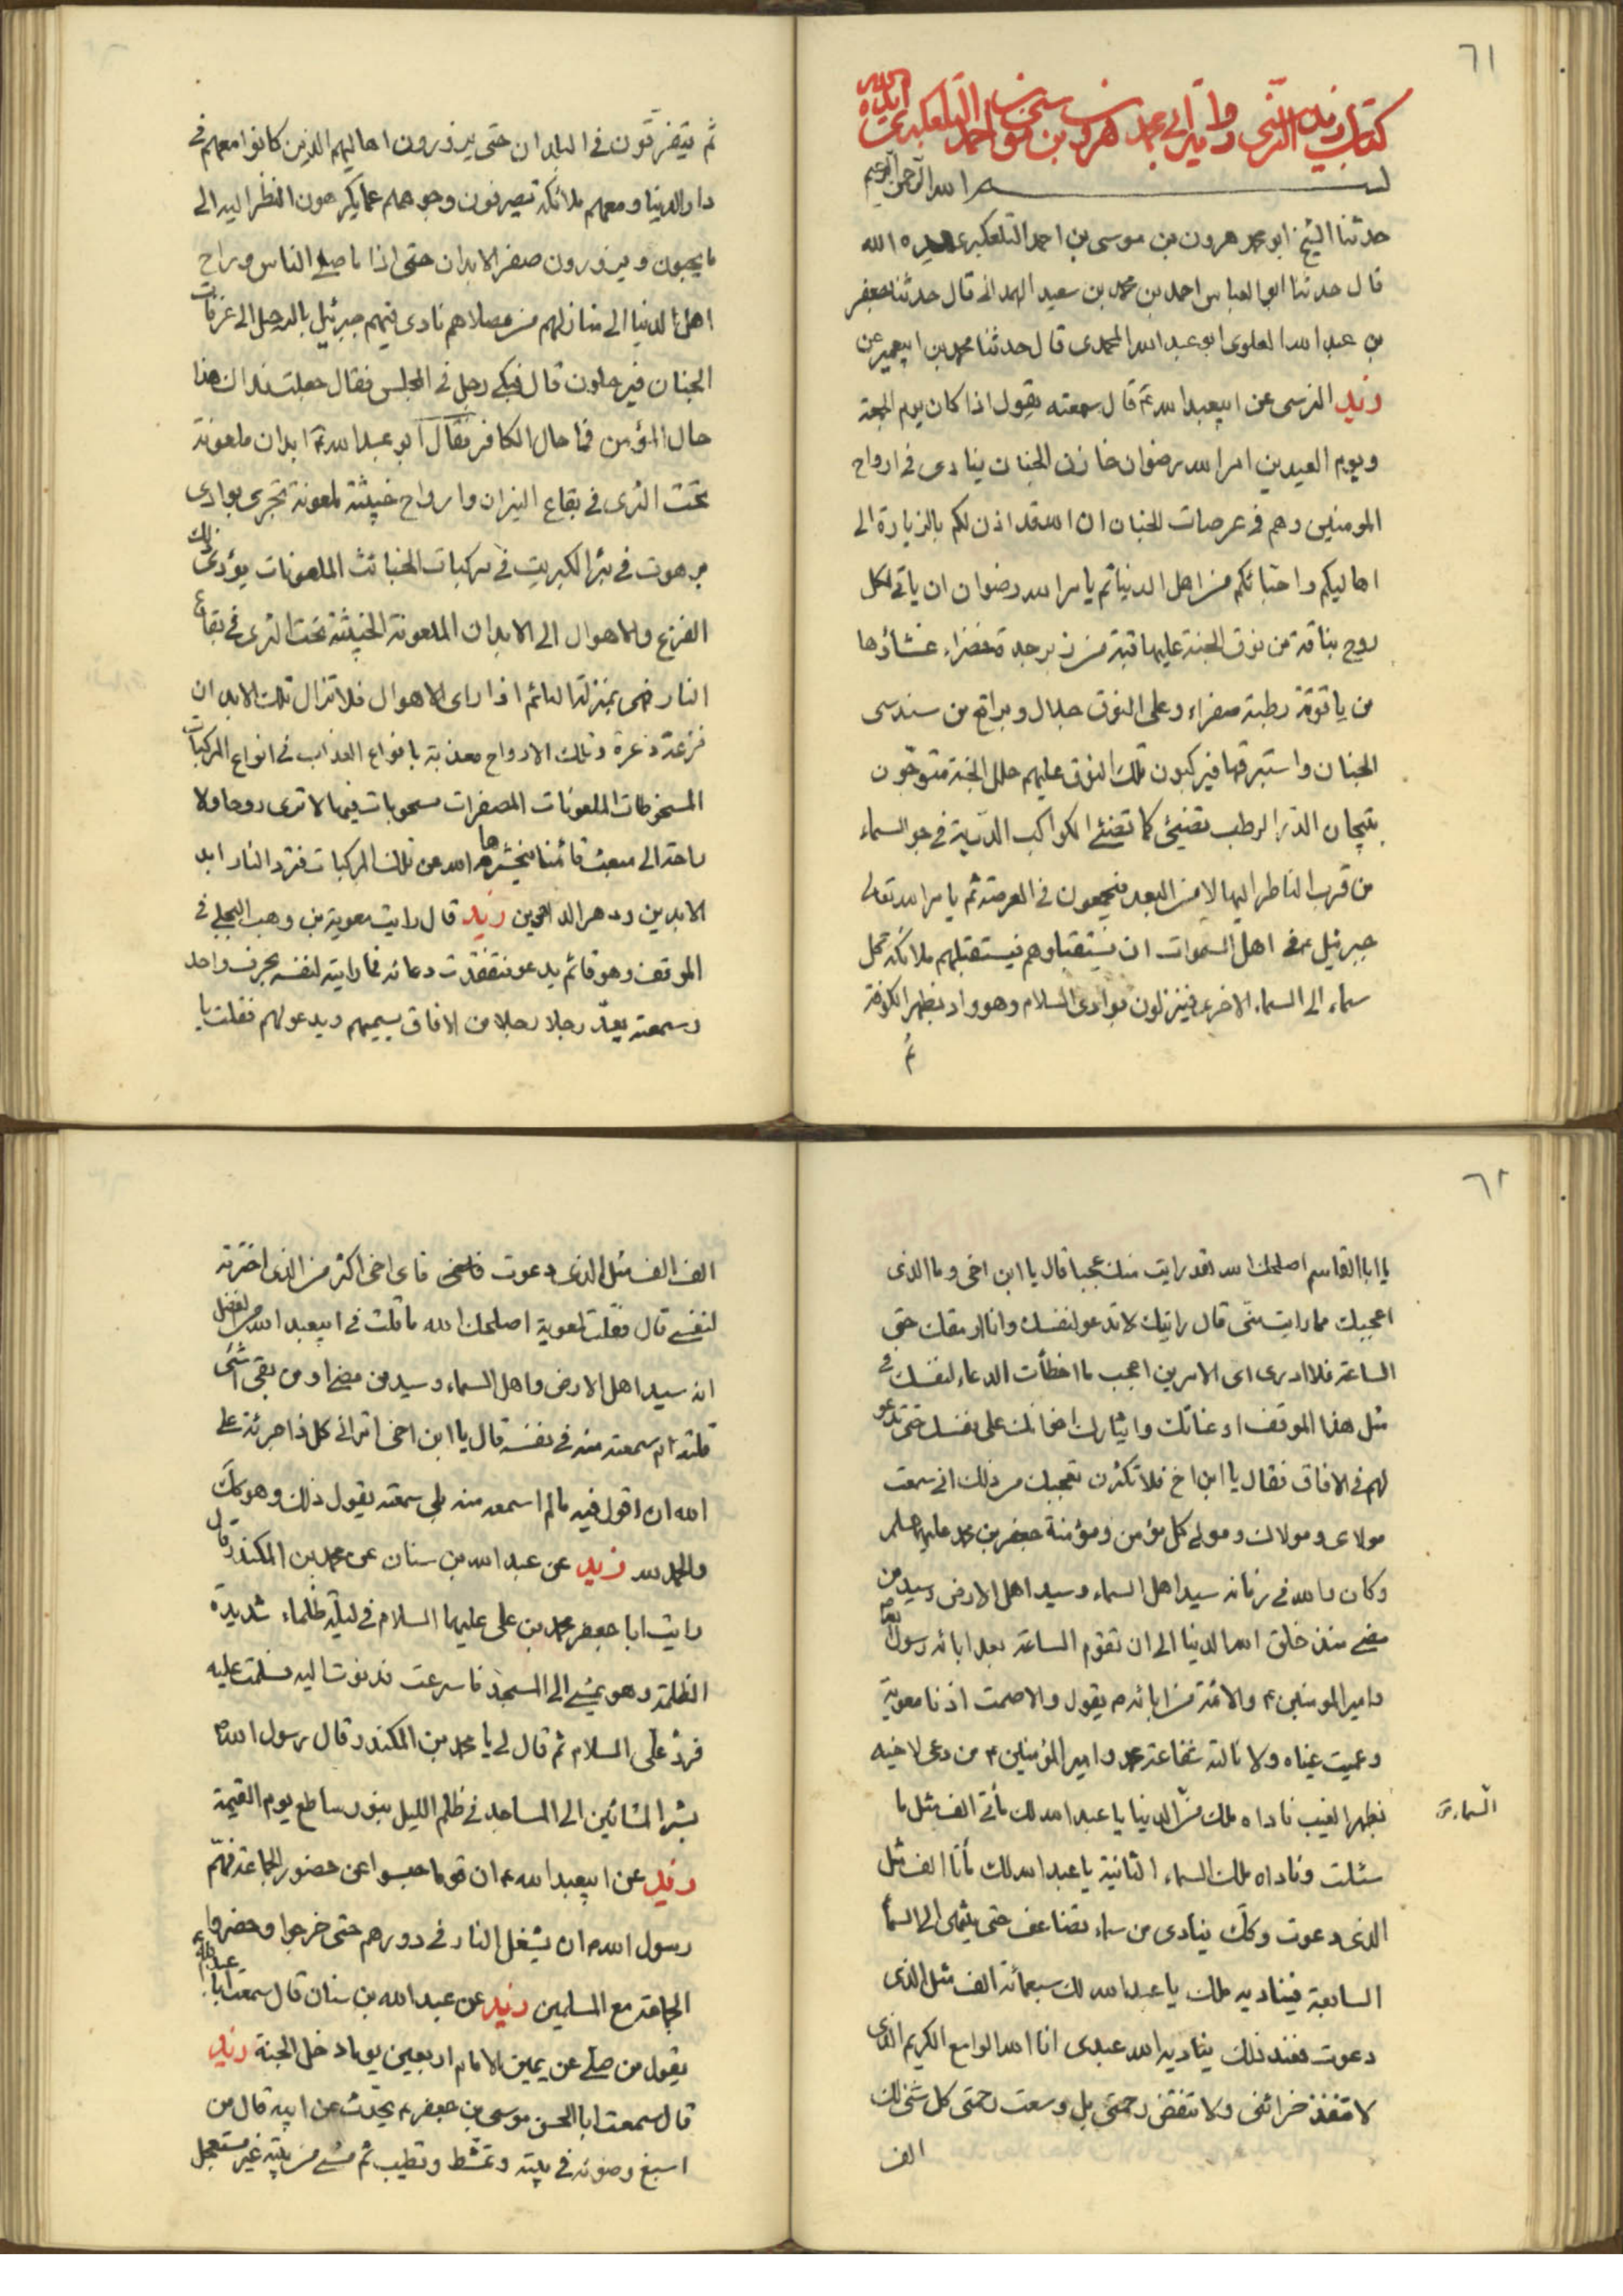 ٦١
كتاب زيد النرسي رواية ابي محمد هرون بن موسى بن احمد التلعكبري ايده الله
بسم الله الرحمن الرحيم
حدثنا الشيخ ابو محمد هرون بن موسى بن احمد التلعكبرى ايده الله
قال حدثنا ابو العباس احمد بن محمد بن سعيد الهمدانى قال حدثنا جعفر
بن عبد الله العلوى ابو عبد الله المحمدى قال حدثنا محمد بن ابيعمير عن
زيد النرسى عن ابيعبد الله ع قال سمعته يقول اذا كان يوم الجمعة
ويوم العيدين امر الله رضوان خازن الجنان ينادى فى ارواح
المومنين وهم فى عرصات الجنان ان الله قد اذن لكم بالزيارة الى
اهاليكم واحبائكم من اهل الدنيا ثم يامر الله رضوان ان ياتى لكل
روح بناقة من نوق الجنة عليها قبة من زبرجدة خضراء غشاؤها
من ياقوتة رطبة صفراء وعلى النوق جلال وبراقع من سندس
الجنان واستبرقها فيركبون تلك النوق عليهم حلل الجنة متوجون
بتيجان الدر الرطب تضئ كما تضئ الكواكب الدرية فى جو السماء
من قرب الناظر اليها لا من البعد فيجمعون فى العرصة ثم يامر الله تعالى
جبرئيل فى اهل السموات ان يستقبلوهم فيستقبلهم ملائكة كل
سماء الى السماء الاخرى فينزلون بوادى السلام وهو واد بظهر الكوفة
ثم
ثم يتفرقون فى البلدان حتى يزورون اهاليهم الذين كانوا معهم فى
دار الدنيا ومعهم ملائكة يصرفون وجوههم عما يكرهون النظر اليه الى
ما يحبون ويزورون حفر الابدان حتى اذا ما صلى الناس وراح
اهل الدنيا الى منازلهم من مصلاهم نادى فيهم جبرئيل بالرحيل الى غرفات
الجنان فيرحلون قال فبكى رجل فى المجلس فقال جعلت فداك هذا
حال المؤمن فما حال الكافر فقال ابو عبد الله ع ابدان ملعونة
تحت الثرى فى بقاع النيران وارواح خبيثة ملعونة تجرى بوادى
برهوت فى بئر الكبريت فى مركبات الخبائث الملعونات يؤدى ذلك
الفزع والاهوال الى الابدان الملعونة الخبيثة تحت الثرى فى بقاع
النار فهى بمنزلة النائم اذا راى الاهوال فلا تزال تلك الابدان
فزعة ذعرة وتلك الارواح معذبة بانواع العذاب فى انواع المركبات
المسخوطات الملعونات المصفرات مسجونات فيها لا ترى روحا ولا
راحة الى مبعث قائمنا فيحشرها الله من تلك المركبات فترد النار ابد
الابدين ودهر الداهرين زيد قال رايت معوية بن وهب البجلى فى
الموقف وهو قائم يدعو فتفقدت دعائه فما رايته لنفسه بحرف واحد
وسمعته يعد رجلا رجلا من الافاق يسميهم ويدعو لهم فقلت يا
٦٢
يا ابا القاسم اصلحك الله لقد رايت منك عجبا قال يا ابن اخى وما الذى
اعجبك مما رايت منى قال رايتك لا تدعو لنفسك وانا ارمقك حتى
الساعة فلا ادرى اى الامرين اعجب ما اخطأت الدعاء لنفسك فى
مثل هذا الموقف او عنائك وايثارك اخوانك على نفسك حتى تدعو
لهم فى الافاق فقال يا ابن اخ فلا تكثرن تعجبك من ذلك انى سمعت
مولاى ومولاك ومولى كل مؤمن ومؤمنة جعفر بن محمد عليهما السلام
وكان والله فى زمانه سيد اهل السماء وسيد اهل الارض وسيد من
مضى منذ خلق الله الدنيا الى ان تقوم الساعة بعد ابائه رسول الله
وامير المومنين ع والائمة من ابائه م يقول والا صمت اذنا معوية
وعميت عيناه ولا نالته شفاعة محمد وامير المؤمنين ع من دعى لاخيه
بظهر الغيب ناداه ملك من الدنيا يا عبد الله لك مأتى الف مثل ما
السماء
سئلت وناداه ملك السماء الثانية يا عبد الله لك مأتا الف مثل
الذى دعوت وكك ينادى من سماء تضاعف حتى ينتهى الى السماء
السابعة فيناديه ملك يا عبد الله لك سبعمائة الف مثل الذى
دعوت فعند ذلك يناديه الله عبدى انا الله الواسع الكريم الذى
لا تنفد خزائنى ولا تنقص رحمتى بل وسعت رحمتى كل شئ لك
الف
الف الف مثل الذى دعوت فاى اخى اكثر من الذى اخترته
لنفسى قال فقلت لمعوية اصلحك الله ما قلت فى ابيعبد الله من الفضل
انه سيد اهل الارض واهل السماء وسيد من مضى او من بقى اشئ
قلته ام سمعته منه فى نفسه قال يا ابن اخى اترانى كل ذا جرئة على
الله ان اقول فيه ما لم اسمعه منه بلى سمعته يقول ذلك وهو كك
والحمد لله زيد عن عبد الله بن سنان عن محمد بن المكندر قال
رايت ابا جعفر محمد بن على عليهما السلام فى ليلة ظلماء شديدة
الظلمة وهو يمشى الى المسجد فاسرعت فدنوت اليه فسلمت عليه
فرد على السلام ثم قال لى يا محمد بن المكندر قال رسول الله ص
بشر المشائين الى المساجد فى ظلم الليل بنور ساطع يوم القيمة
زيد عن ابيعبد الله ع ان قوما حبسوا عن حضور الجماعة فهم
رسول الله ص ان يشعل النار فى دورهم حتى خرجوا وحضروا
الجماعة مع المسلمين زيد عن عبد الله بن سنان قال سمعت ابا عبد الله
يقول من صلى عن يمين الامام اربعين يوما دخل الجنة زيد
قال سمعت ابا الحسن موسى بن جعفر ع يحدث عن ابيه قال من
اسبغ وضوئه فى بيته وتمشط وتطيب ثم مشى من بيته غير مستعجل